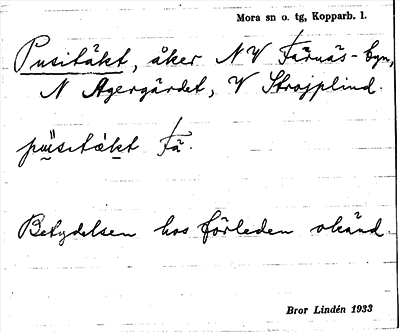 Mora sn o. tg, Kopparb. l.
Pusitäkt, åker NV Färnäs-byn,
N Agergärdet, V Strojplind.
püsitäkt Fä.
Betydelsen hos förleden okänd.
Bror Lindén 1933